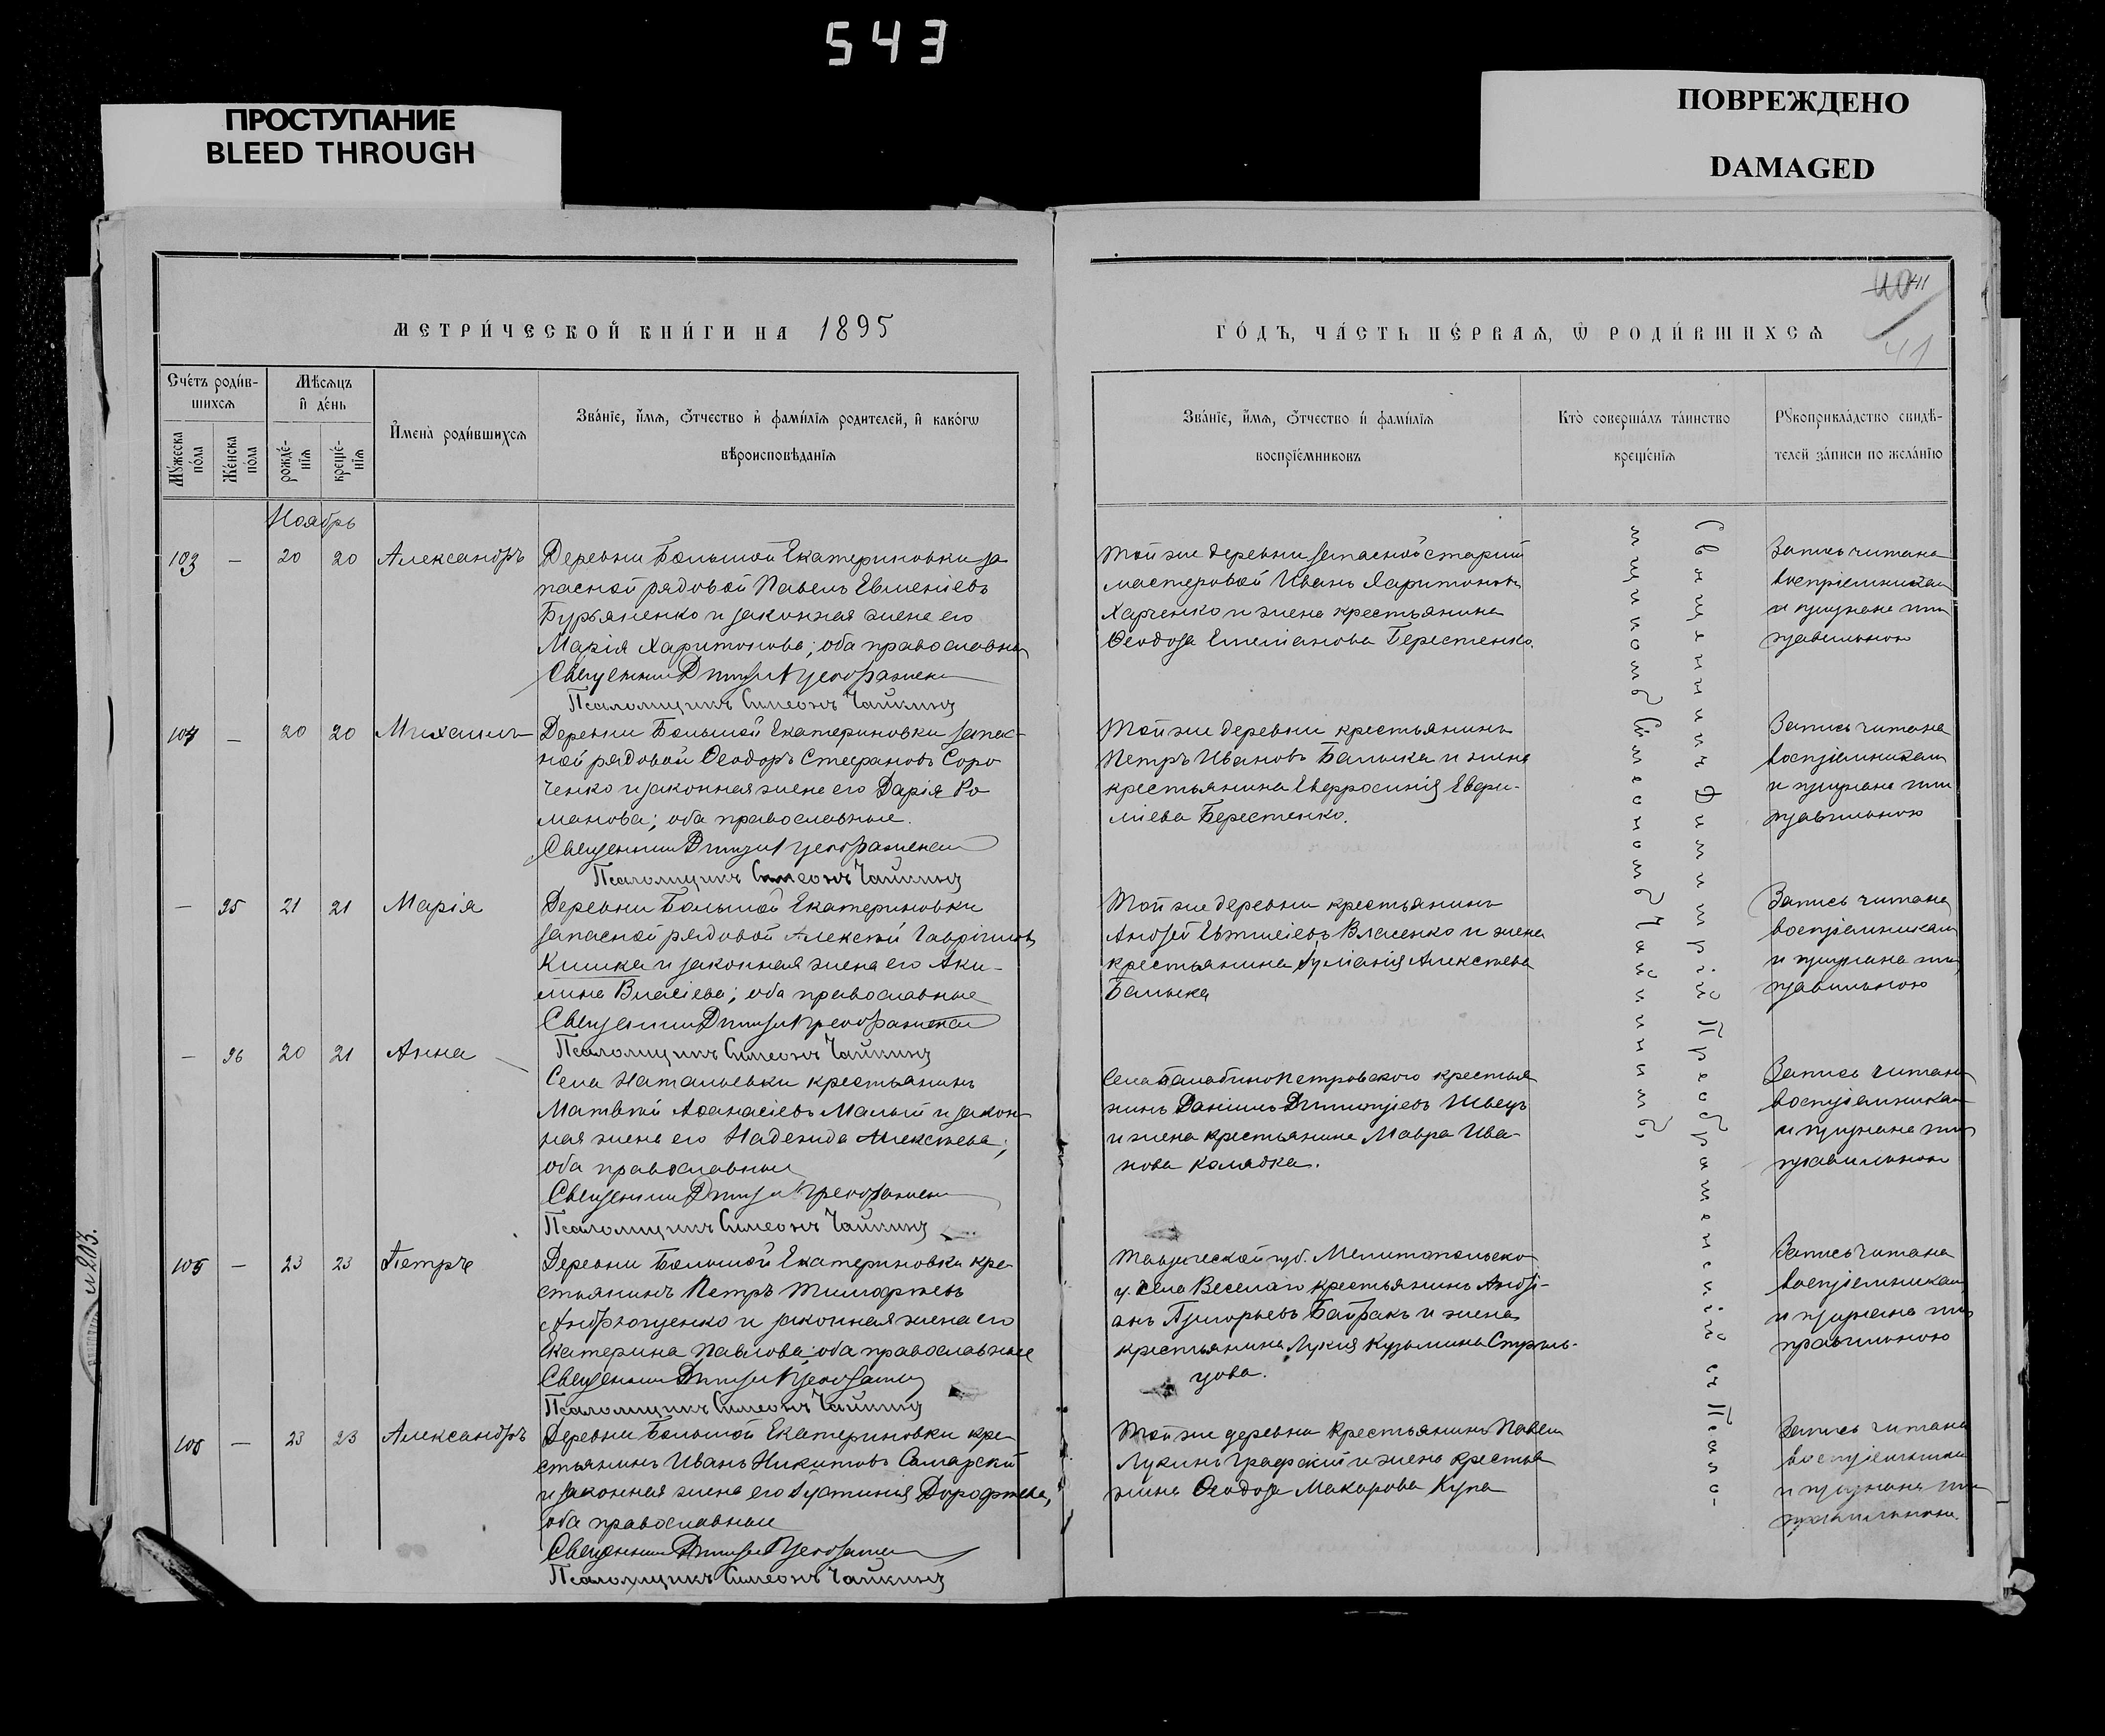 543
ПРОСТУПАНИЕ
BLEED THROUGH
ПОВРЕЖДЕНО
DAMAGED
41
41
МЕТРИ́ЧЕСКОЙ КНИ́ГИ НА 1895
ГО́ДЪ, ЧА́СТЬ ПЕ́РВАѦ, Ѡ҆ РОДИ́ВШИХСѦ
Сче́тъ роди́в-
шихсѧ
Мꙋ́жеска по́ла
Же́нска по́ла
Мѣ́сѧцъ
и҆ де́нь
рожде́-
нїѧ
креще́-
нїѧ
И҆мена̀ роди́вшихсѧ
Зва́нїе, и҆́мѧ, ѻ҆́тчество и҆ фами́лїѧ родителей, и҆ како́гѡ
вѣроисповѣ́данїѧ
Зва́нїе, и҆́мѧ, ѻ҆́тчество и҆ фами́лїѧ
воспрїе́мниковъ
Кто̀ соверша́лъ та́инство
креще́нїѧ
Рꙋкоприкла́дство свидѣ́-
телей за́писи по жела́нїю
Ноябрь
103 — 20 20 Александръ
Деревни Большой Екатериновки за
пасной рядовой Павелъ Евменіевъ
Бурьяненко и законная жена его
Марія Харитонова; оба православны
Священникъ Димитрій Преображен
Псаломщикъ Симеонъ Чайкинъ
Той же деревни запасной старшій
мастеровой Иванъ Харитоновъ
Харченко и жена крестьянина
Ѳеодора Берестенко.
Запись читана
воспріемникам
и признана ими
правильною
104 — 20 20 Михаилъ
Деревни Большой Екатериновки запас-
ной рядовой Ѳеодоръ Стефановъ Соро
ченко и законная жена его Дарія Ро
манова; оба православные.
Священникъ Димитрій Преображенск
Псаломщикъ Симеонъ Чайкинъ
Той же деревни крестьянинъ
Петръ Ивановъ Балыка и жена
крестьянина Евфросинія Евфи-
міева Берестенко.
Запись читана
воспріемникам
и признана ими
правильною
— 95 21 21 Марія
Деревни Большой Екатериновки
запасной рядовой Алексѣй Гавріиловъ
Кишка и законная жена его Аки-
лина Власіева; оба православные
Священникъ Димитрій Преображенск
Псаломщикъ Симеонъ Чайкинъ
Той же деревни крестьянинъ
Андрей Власенко и жена
крестьянина Іуліанія Алексѣева
Балыка
Запись читана
воспріемникам
и признана ими
правильною
— 96 20 21 Анна
Села Натальевки крестьянинъ
Матвѣй Аѳанасіевъ Малый и закон
ная жена его Надежда Алексѣева;
оба православные
Священникъ Димитрій Преображен
Псаломщикъ Симеонъ Чайкинъ
Села Балабино Петровского крестья
нинъ Даніилъ Димитріевъ Швецъ
и жена крестьянина Мавра Ива-
нова Колядка.
Запись читана
воспріемникам
и признана ими
правильною
105 — 23 23 Петръ
Деревни Большой Екатериновки кре
стьянинъ Петръ Тимофеевъ
Андрющенко и законная жена его
Екатерина Павлова; оба православные
Священникъ Димитрій
Псаломщикъ Симеонъ Чайкинъ
Таврической губ. Мелитопольско
у. села Веселаго крестьянинъ Андрі-
анъ Григорьевъ Байракъ и жена
крестьянина Лукія Кузьмина Стрѣль-
цова.
Запись читана
воспріемникам
и признана ими
правильною
106 — 23 23 Александръ
Деревни Большой Екатериновки кре
стьянинъ Иванъ Никитовъ Самарскій
и законная жена его Іустинія Дорофѣева,
оба православные
Священникъ Димитрій
Псаломщикъ Симеонъ Чайкинъ
Той же деревни крестьянинъ Павелъ
Лукинъ Графскій и жена крестья
нина Ѳеодора Макарова Купа
Запись читана
воспріемникам
и признана ими
правильною.
Священникъ Димитрій Преображенскій съ Псало-
мщикомъ Симеономъ Чайкинымъ.
л 203.